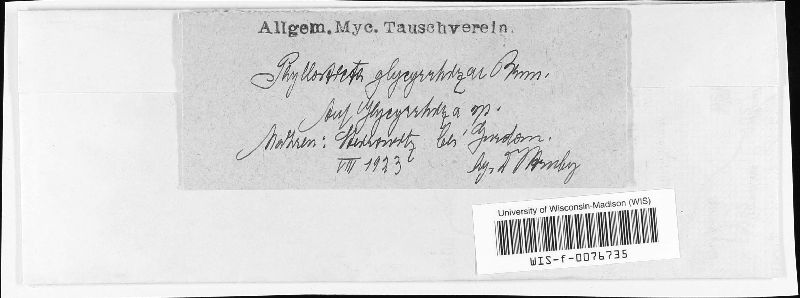 Allgem. Myc. Tauschverein.
Phyllosticta glycyrrhizae Brun.
Auf Glycyrrhiza sp.
Mähren: bei
VIII 1923 lg.
University of Wisconsin-Madison (WIS)
WIS-f-0076735